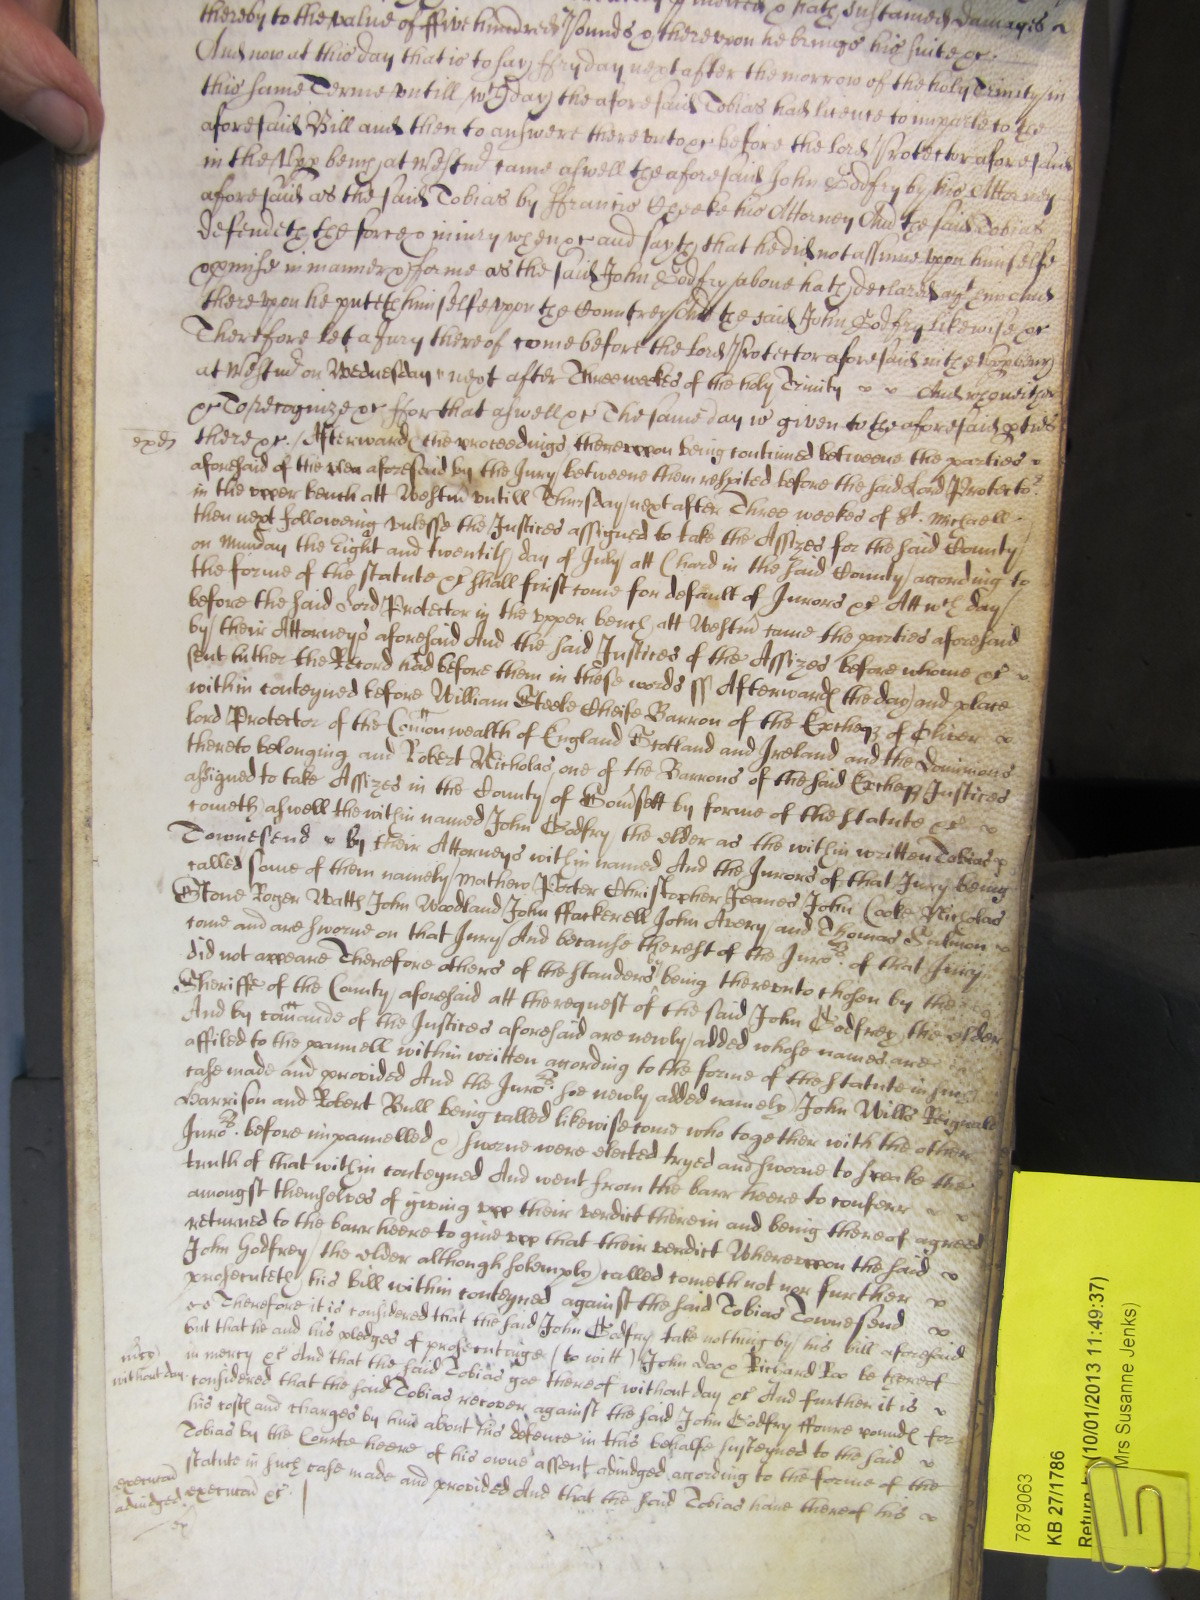 thereby to the value of ffive hundred Pounds & thereupon he brings his suite &c.
And now at this day that is to say ffryday next after the morrow of the holy Trinity in
this same Terme untill wch day the aforesaid Tobias had licence to imparle to the
aforesaid Bill and then to answere thereunto &c before the Lord Protector aforesaid
in the Upp bench at Westmr came aswell the aforesaid John Godfry by his Attorney
aforesaid as the said Tobias by ffrancis his Attorney And the said Tobias
defendeth the force & iniury when &c and sayth that he did not assume upon himselfe
& promise in manner & forme as the said John Godfry above hath declared agt him And
thereupon he putteth himselfe upon the Countrey And the said John Godfry likewise &c
Therefore let a Jury thereof come before the Lord Protector aforesaid in the Upp bench
at Westmr on Wednesday next after Three weekes of the holy Trinity And who neither
&c To recognize &c ffor that aswell &c The same day is given to the aforesaid pties
there &c. Afterwards the proceedings thereuppon being continued betweene the parties
aforesaid of the plea aforesaid by the Jury betweene them respited before the said Lord Protector
in the upper bench att Westmr untill Thursday next after Three weekes of St. Michaell
then next following unlesse the Justices assigned to take the Assizes for the said County
on Munday the Eight and twentith day of July att Chard in the said County according to
the forme of the statute &c shall first come for default of Jurors &c Att wch day
before the said Lord Protector in the upper bench att Westmr came the parties aforesaid
by their Attorneys aforesaid And the said Justices of the Assizes before whome &c
sent hither the Record had before them in these words ss Afterwards the day and place
within conteyned before William Steele Cheife Barron of the Excheqr of Oliver
lord Protector of the Comonwealth of England Scotland and Ireland and the Dominions
thereto belonging and Robert Nicholas one of the Barrons of the said Excheqr Justices
assigned to take Assizes in the County of Somsett by forme of the statute &c
cometh aswell the within named John Godfry the elder as the within written Tobias
Townesend by their Attorneys within named And the Jurors of that Jury being
called some of them namely Mathew Procter Christopher Jeanes John Cooke Nicholas
Stone Roger Watts John Woodland John ffackerell John Avery and Thomas Salmon
come and are sworne on that Jury And because the rest of the Jurors of that Jury
did not appeare Therefore others of the standers by being thereunto chosen by the
Sheriffe of the County aforesaid att the request of the said John Godfrey the elder
And by comande of the Justices aforesaid are newly added whose names are
affiled to the pannell within written according to the forme of the statute in such
case made and provided And the Jurors soe newly added namely John Wills
Harrison and Robert Bull being called likewise come who together with the other
Jurors before impannelled & sworne were elected tryed and sworne to speake the
truth of that within conteyned And went from the barr heere to conferr
amongst themselves of giving upp their verdict therein and being thereof agreed
returned to the barr heere to give upp that their verdict Whereuppon the said
John Godfrey the elder although solemply called cometh not nor further
prosecuteth his bill within conteyned against the said Tobias Townesend
Therefore it is considered that the said John Godfrey take nothing by his bill aforesaid
but that he and his pledges of prosecutinge (to witt) John doo & Richard Roo be thereof
in mercy &c And that the said Tobias goe thereof without day &c And further it is
considered that the said Tobias recover against the said John Godfry ffoure pounds for
his costs and charges by him about his defence in this behalfe susteyned to the said
Tobias by the Courte heere of his owne assent adiudged according to the forme of the
statute in such case made and provided And that the said Tobias have thereof his
execucon &c.
mercy
without day
execucon
adiudged
7879063
KB 27/1786
(10/01/2013 11:49:37)
Mrs Susanne Jenks)